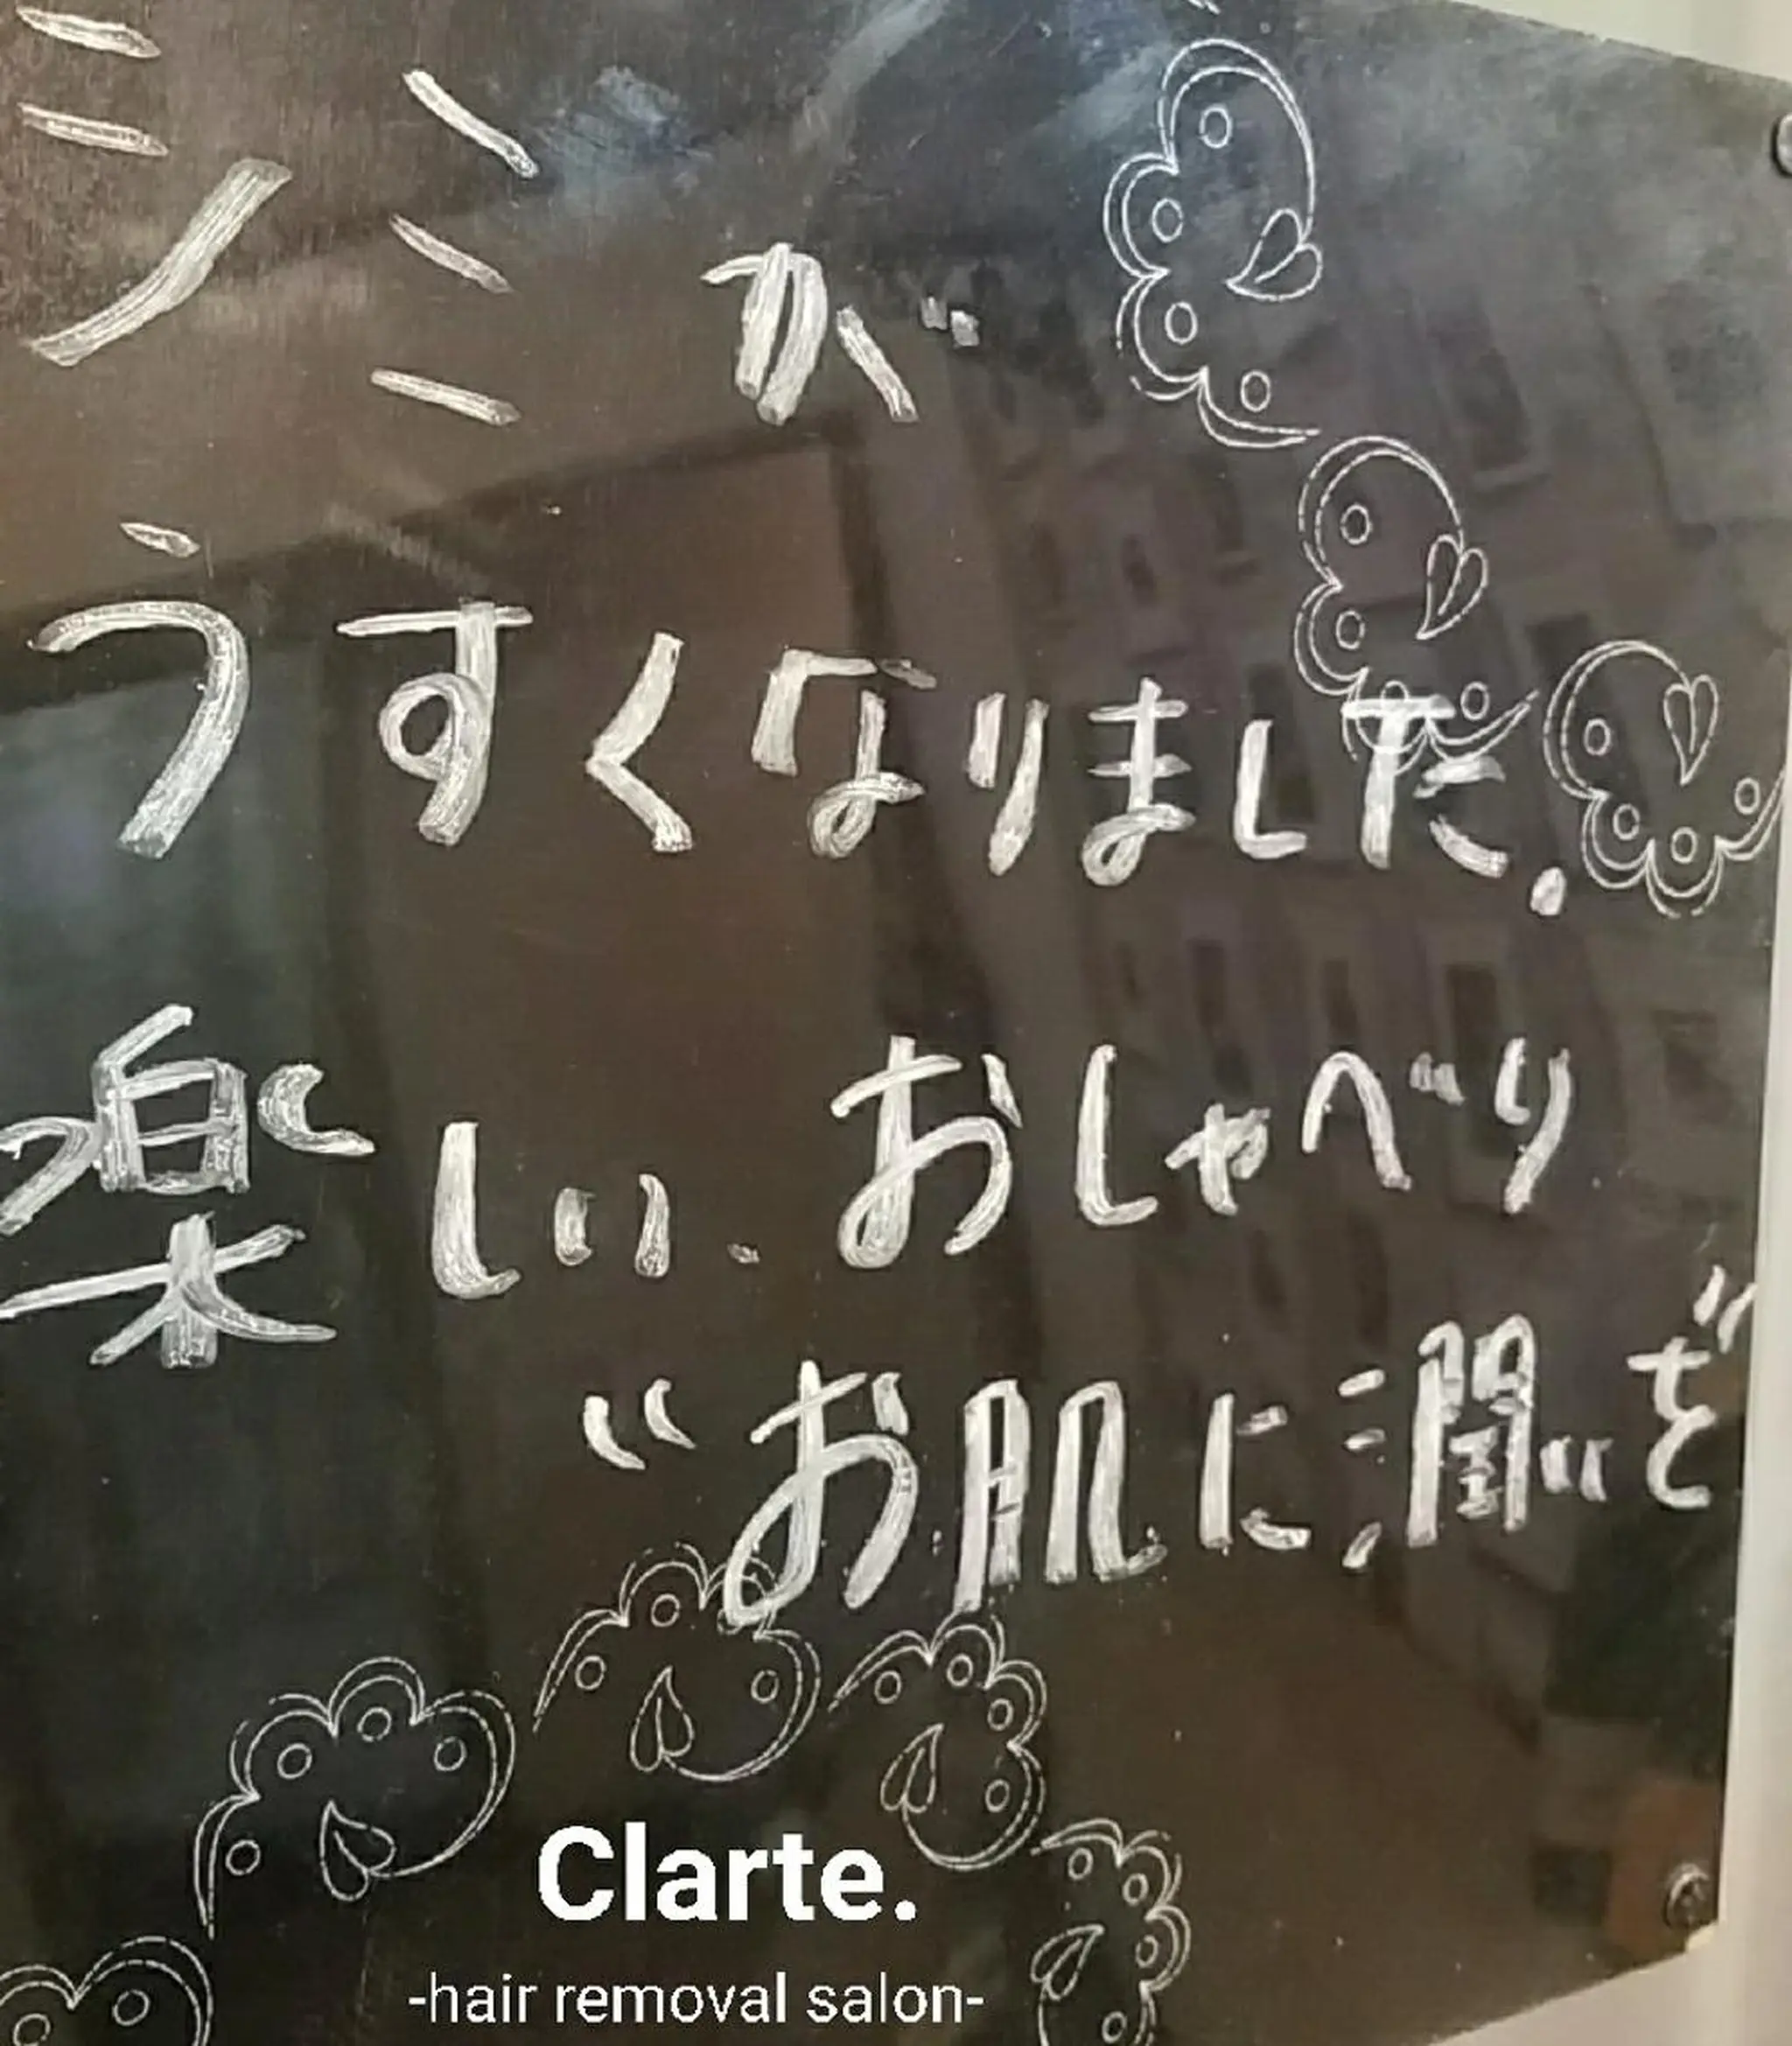 シミが
うすくなりました.
楽しい、おしゃべり
"お肌に潤"を
Clarte.
-hair removal salon-